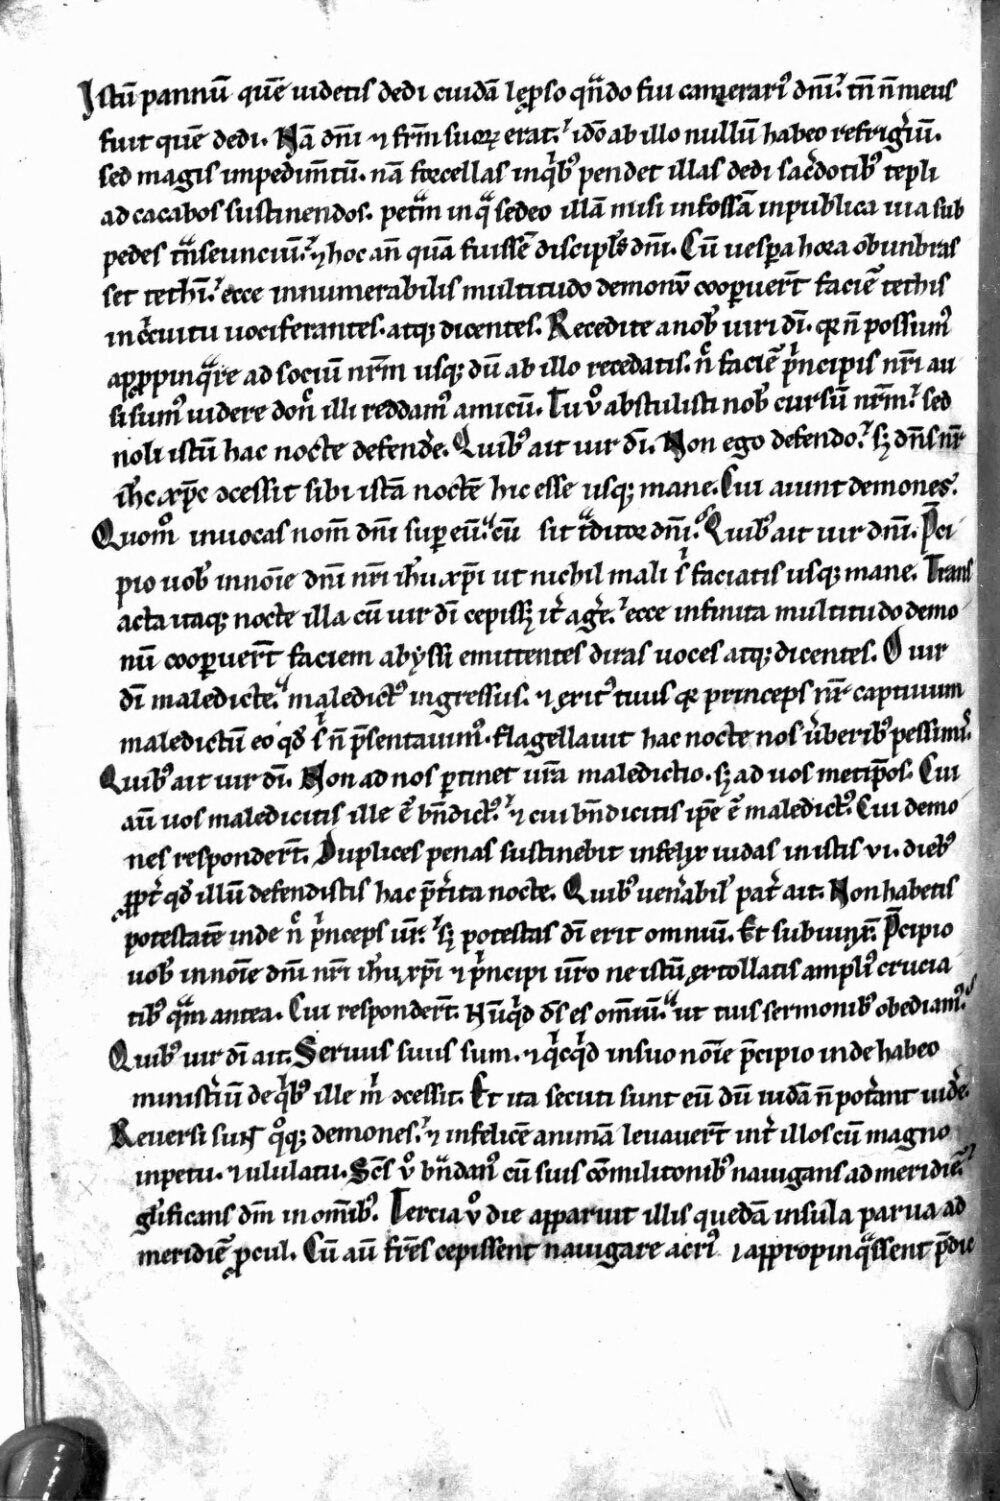 Istū pannū quē uidetis dedi cuidā leꝓso qn̄do fui camerariꝰ dn̄i. tn̄ n̄ meus
fuit quē dedi. Nā dn̄i ⁊ frm̄ suoꝝ erat. ido ab illo nullū habeo refrigiū.
sed magis impedim̄tū. nā forcellas inqͥbꝰ pendet illas dedi sac̉dotibꝰ tepli
ad cacabos sustinendos. petͣm in qͣ sedeo illā misi in fossā in publica uia sub
pedes tͣnseunciū. ⁊ hoc an̄ quā fuissē discipl̄s dn̄i. Cū uesꝑa hora obunbras
set tethī. ecce innumerabilis multitudo demonū cooꝑuer̄t faciē tethis
in c̉cuitu uociferantes. atqꝫ dicentes. Recedite a nob̄ uiri dī. qꝛ n̄ possumꝰ
aꝓpinqͣre ad sociū nrm̄ usqꝫ dū ab illo recedatis. nͨ faciē pͥncipis nr̄i au
si sumꝰ uidere donͨ illi reddamꝰ amicū. Tu vͦ abstulisti nob̄ cursū nrm̄. sed
noli istū hac nocte defend̉e. Quibꝰ ait uir dī. Non ego defendo. sꝫ dn̄s nr̄
ih̄c xp̄c ↄcessit sibi istā noctē hic esse usqꝫ mane. Cui aiunt demones.
Quom̊ inuocas nom̄ dn̄i suꝑ eū. cū sit tͣditor dn̄i. Quibꝰ ait uir dn̄i. P̄ci
pio uob̄ in noīe dn̄i nr̄i ih̄u xp̄i ut nichil mali sͥ faciatis usqꝫ mane. Trans
acta itaqꝫ nocte illa cū uir dī cepissꝫ it̉ ag̉e. ecce infinita multitudo demo
nū cooꝑuer̄t faciem abẏssi emittentes diras uoces atqꝫ dicentes. O uir
dī maledicte. maledictꝰ ingressus. ⁊ exitꝰ tuus qꝛ princeps nr̄ captiuum
maledictū eo qd̄ sͥ n̄ p̄sentauimꝰ. flagellauit hac nocte nos ūberibꝰ pessimis.
Quibꝰ ait uir dī. Non ad nos ꝑtinet ur̄a maledictio. sꝫ ad uos metip̄os. Cui
aū uos maledicitis ille ē bn̄dictꝰ. ⁊ cui bn̄dicitis ip̄e ē maledictꝰ. Cui demo
nes responder̄t. Duplices penas sustinebit infelix iudas in istis vi. diebꝰ
ꝓpt̉ qd̄ illū defendistis hac p̄t̉ita nocte. Quibꝰ uen̉abil̄ pat̉ ait. Non habetis
potestatē inde nͨ pͥnceps ur̄. sꝫ potestas dī erit omniū. Et subiunx̄. P̄cipio
uob̄ in noīe dn̄i nr̄i ih̄u xp̄i ⁊ pͥncipi ur̄o ne istū extollatis ampliꝰ crucia
tibꝰ qͣm antea. Cui responder̄t. Nū qͥd dn̄s es om̄iū. ut tuis sermonibꝰ obediamꝰ.
Quibꝰ uir dī ait. Seruus suus sum. ⁊ qͥcqͥd in suo noīe p̄cipio inde habeo
minist̉iū de qͥbꝰ ille mͥ ↄcessit. Et ita secuti sunt eū dū iudā n̄ pot̉ant uid̉e.
Reuersi sunt qͦqꝫ demones. ⁊ infelicē animā leuauer̄t int̉ illos cū magno
inpetu. ⁊ ululatu. Sc̄s vͦ bn̄danꝰ cū suis cōmilitonibꝰ nauigans ad meridiē.
gl̄ificans dm̄ in om̄ibꝰ. Tercia vͦ die apparuit illis quedā insula parua ad
meridiē ꝓcul. Cū aū fr̄es cepissent nauigare acriꝰ ⁊ appropinqͣssent p̄dic